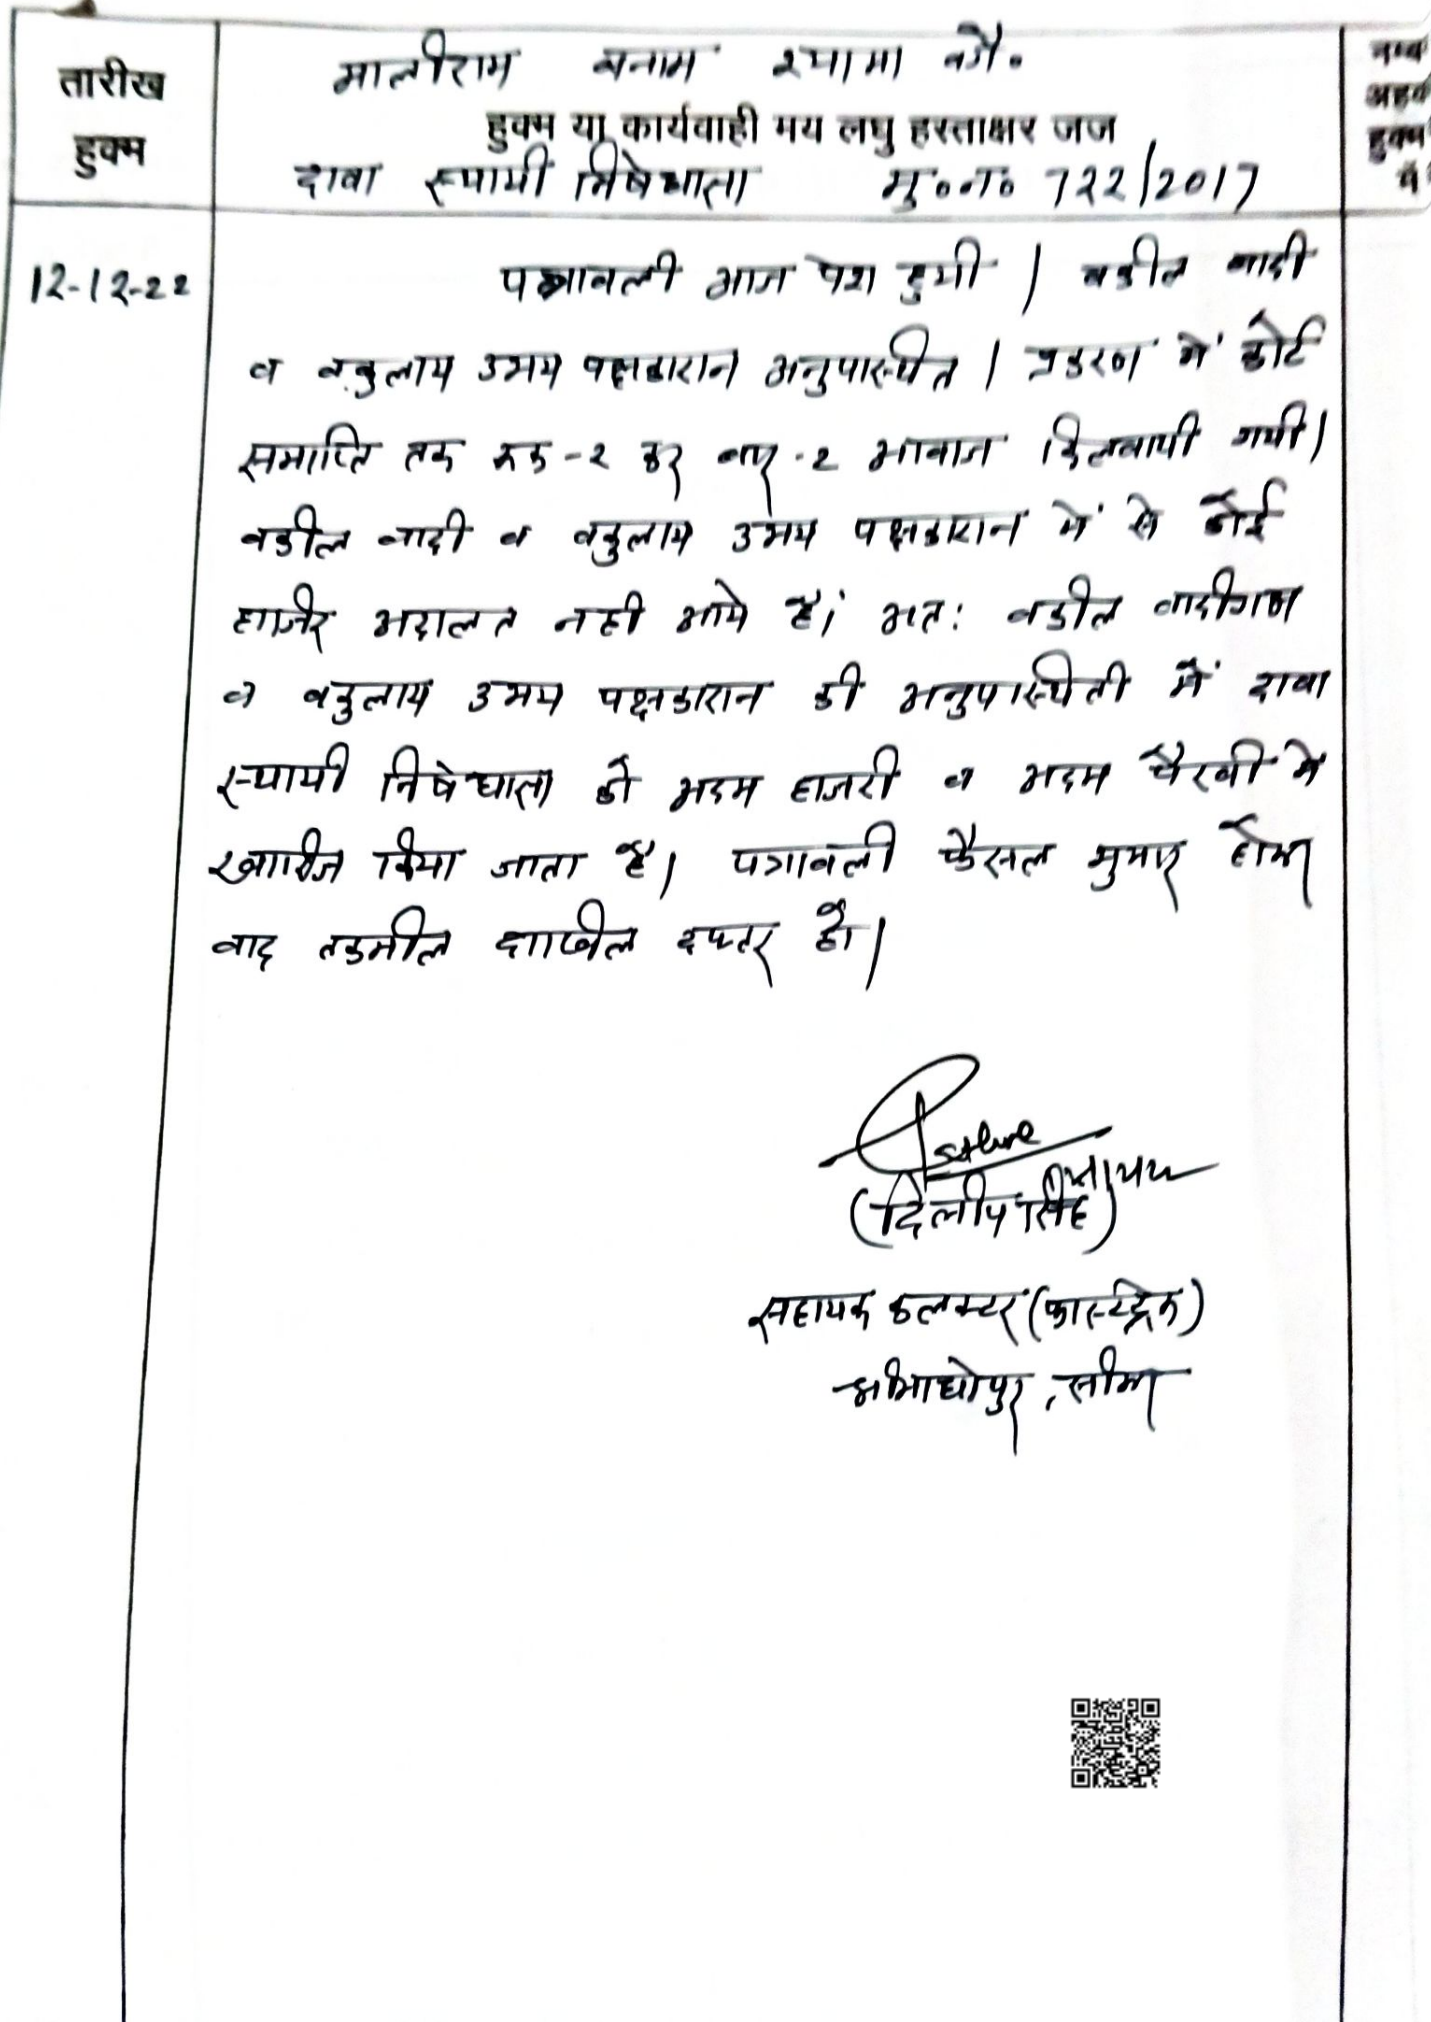 तारीख
हुक्म
मालीराम बनाम श्यामा वगै.
हुक्म या कार्यवाही मय लघु हस्ताक्षर जज
दावा स्थायी निषेधाज्ञा मु.न. 722/2017
नम्ब
अहक
हुक्म
में
12-12-22
पत्रावली आज पेश हुयी। वकील वादी
व वकुलाय उभय पक्षकारान अनुपस्थित। प्रकरण में कोर्ट
समाप्ति तक रूक-2 कर बार-2 आवाज दिलवायी गयी।
वकील वादी व वकुलाय उभय पक्षकारान में से कोई
हाजिर अदालत नहीं आये हैं। अत: वकील वादीगण
व वकुलाय उभय पक्षकारान की अनुपस्थिती में दावा
स्थायी निषेधाज्ञा को अदम हाजरी व अदम पैरवी में
खारिज किया जाता है। पत्रावली फैसल शुमार होकर
बाद तकमील दाखिल दफ्तर हो।
(दिलीप सिंह)
सहायक कलक्टर (फास्टट्रेक)
श्रीमाधोपुर, सीकर